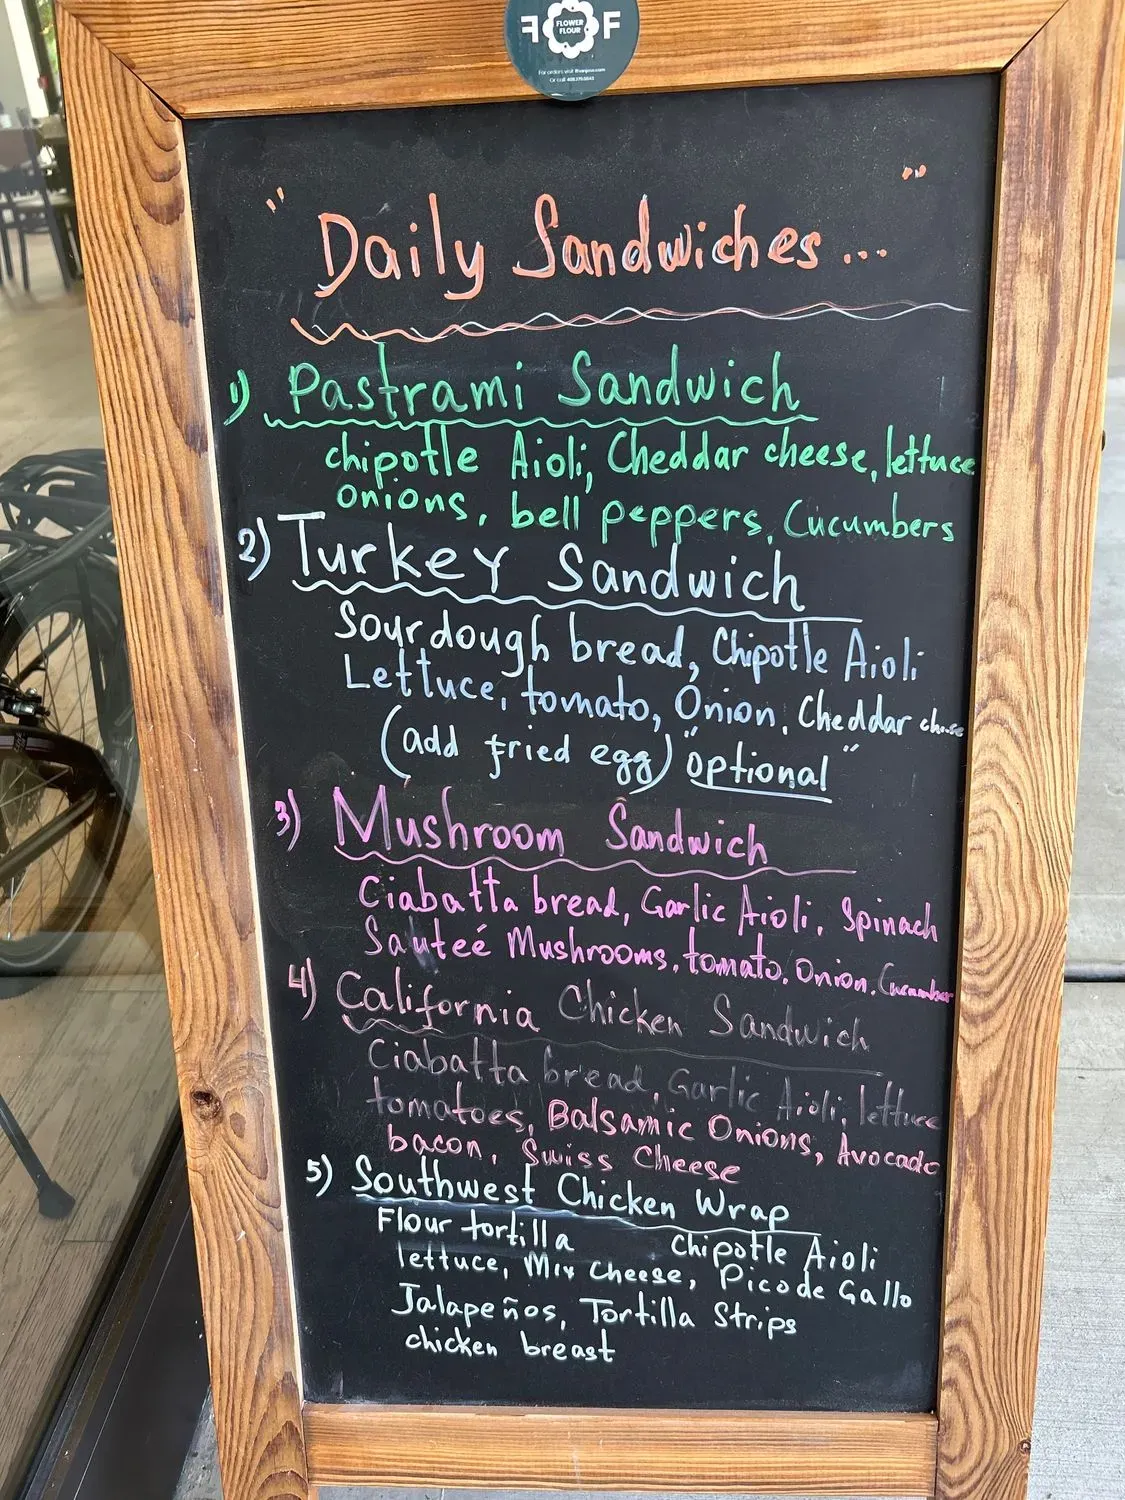 FOF
FLOWER
FLOUR
"Daily Sandwiches..."
1) Pastrami Sandwich
chipotle Aioli, Cheddar cheese, lettuce
onions, bell peppers, Cucumbers
2) Turkey Sandwich
Sourdough bread, Chipotle Aioli
Lettuce, tomato, Onion, Cheddar cheese
(add fried egg) "optional"
3) Mushroom Sandwich
Ciabatta bread, Garlic Aioli, Spinach
Sauteé Mushrooms, tomato, Onion, Cucumber
4) California Chicken Sandwich
Ciabatta bread, Garlic Aioli, lettuce
tomatoes, Balsamic Onions, Avocado
bacon, Swiss Cheese
5) Southwest Chicken Wrap
Flour tortilla Chipotle Aioli
lettuce, Mix Cheese, Pico de Gallo
Jalapeños, Tortilla Strips
chicken breast